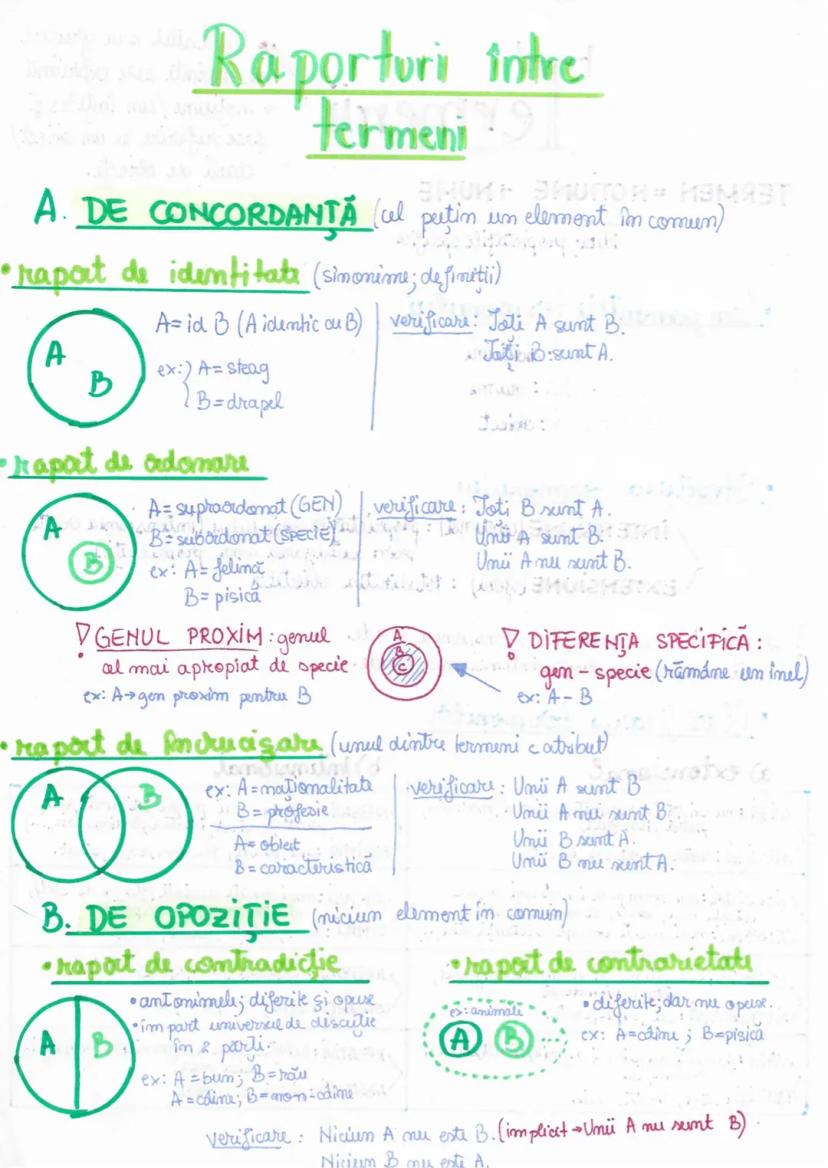 Raporturi între
termeni
A. DE CONCORDANȚĂ (cel puțin un element în comun)
• raport de identitate (sinonime; definiții)
A
B
A = id B (A identic cu B)
ex: A = steag
B = drapel
verificare: Toți A sunt B.
Toți B sunt A.
• raport de ordonare
A
B
A = supraordonat (GEN)
B = subordonat (SPECIE)
ex: A = felină
B = pisică
verificare: Toți B sunt A.
Unii A sunt B.
Unii A nu sunt B.
! GENUL PROXIM: genul
cel mai apropiat de specie
ex: A → gen proxim pentru B
A
B
C
! DIFERENȚA SPECIFICĂ:
gen - specie (rămâne un inel)
ex: A - B
• raport de încrucișare (unul dintre termeni e atribut)
A B
ex: A = naționalitate
B = profesie
A = obiect
B = caracteristică
verificare: Unii A sunt B
Unii A nu sunt B
Unii B sunt A.
Unii B nu sunt A.
B. DE OPOZIȚIE (niciun element în comun)
• raport de contradicție
A B
• antonimele; diferite și opuse
• împart universul de discuție
în 2 părți
ex: A = bun; B = rău
A = câine; B = non-câine
• raport de contrarietate
ex: animale
A B ...
• diferite, dar nu opuse.
ex: A = câine; B = pisică
verificare: Niciun A nu este B. (implicit → Unii A nu sunt B)
Niciun B nu este A.